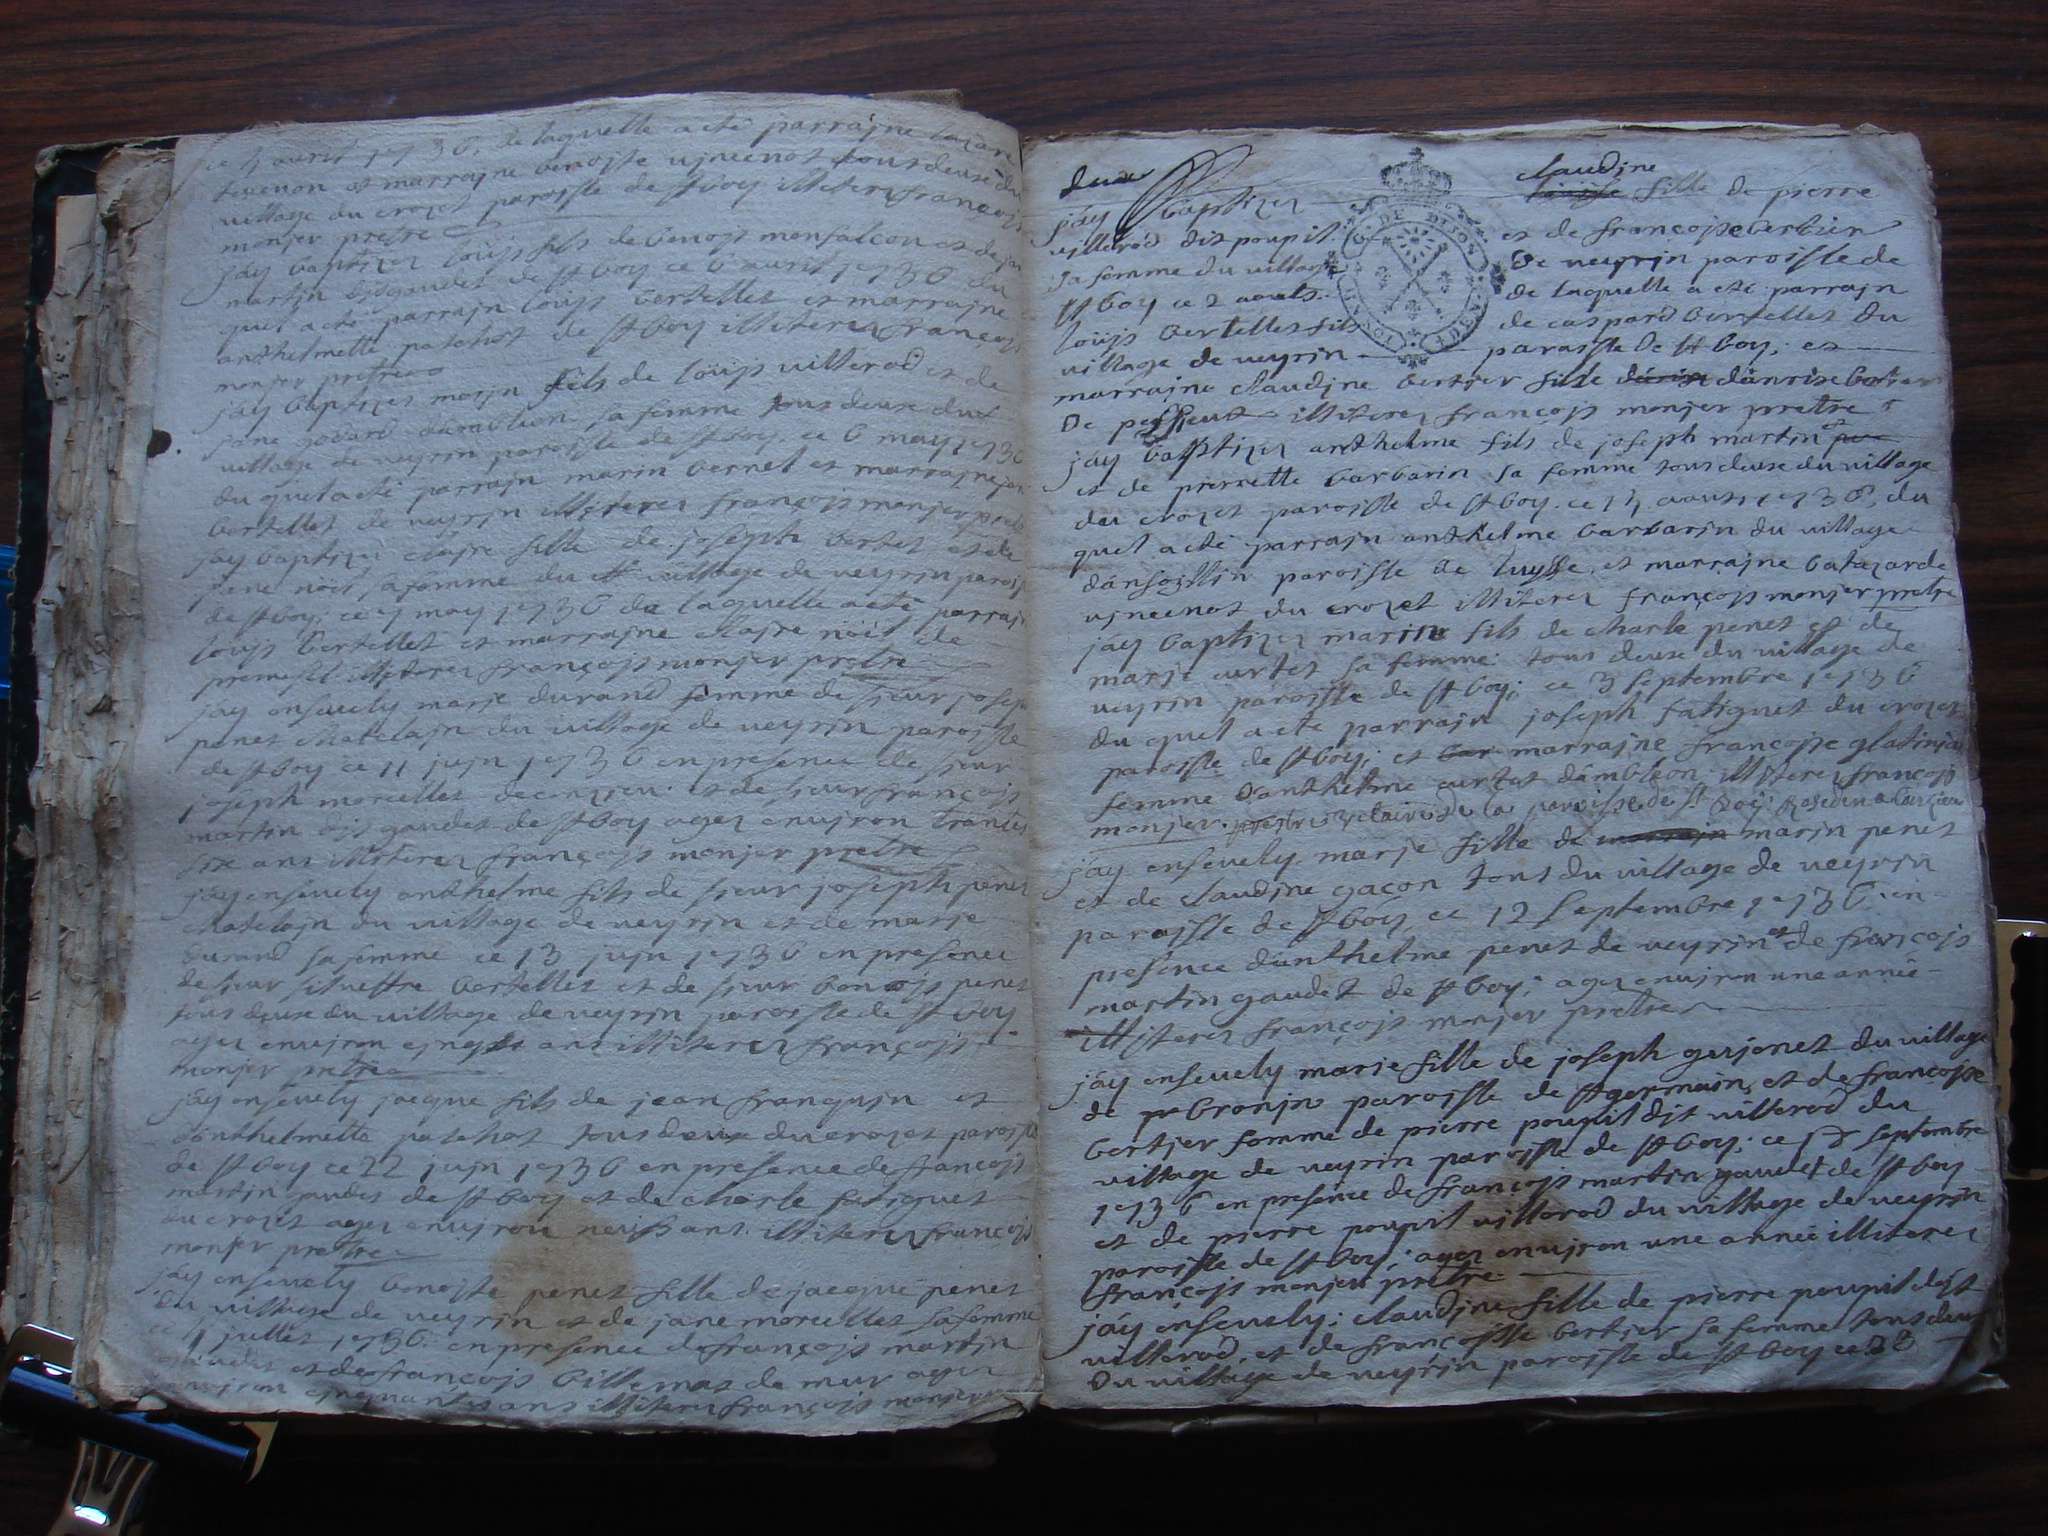 ce 4 avril 1736, de laquelle a eté parrajne lazare
tevenon et marrajne benoiste vjncenot tous deux du
village du crozet paroisse de st boy illiterez françojs
monjer prestre
jáy baptizez loüjs fils de benojs monfalcon et de
martjn djs gaudet de st boy ce 6 avril 1736 du
quel a eté parrajn loujs bertellet et marrajne
anthelmette patchot de st boy illiterez françojs
monjer prestre
jáy baptizez marjn fils de loüjs villerod et de
jane godard sa femme tous deux du
village de veyrjn paroisse de st boy, ce 6 may 1736
du quel a eté parrajn marin bernel et marrajne
bertellet de veyrjn illiterez françojs monjer
jay baptizez clajre fille de joseph bertet et de
jene noit sa femme du village de veyrjn
de st boy, ce 7 may 1736 de laquelle a eté parrajn
loujs bertellet et marrajne clajre noit de
premesel illiterez françojs monjer pretre
jáy ensevely marje durand femme de sjeur
penet chatelajn du village de veyrjn paroisse
de st boy ce 11 jujn 1736 en presence de sjeur
joseph morcellet et de sjeur françojs
martjn djs gaudet de st boy agez envjron
six ans illiterez françojs monjer pretre
jáy ensevely anthelme fils de sjeur joseph penet
chatelajn du village de veyrjn et de marje
durand sa femme ce 13 jujn 1736 en presence
de sjeur silvestre bertellet et de sjeur benojs penet
tous deux du village de veyrjn paroisse de st boy
agez envjron ans illiterez françojs
monjer pretre
jáy ensevely jacque fils de jean franqujn et
dánthelmette patchot tous deux du crozet paroisse
de st boy ce 22 jujn 1736 en presence de françojs
martjn gaudet de st boy et de charle fatiguet
du crozet agez envjron ans illiterez françojs
monjer pretre
jáy ensevely benojste penet fille de jacque penet
du village de veyrjn et de jane morcellet sa femme
ce jullet 1736 en presence de françojs martjn
gaudet et de françojs billemaz de mur agez
envjron cjnquante ans illiterez françojs monjer
DE DIJON
claudjne
jáy baptizez fille de pierre
villerod djt poupil et de françojse bertier
sa femme du village de veyrjn paroisse de
st boy ce 2 aoust de laquelle a eté parrajn
loüjs bertellet fils de caspard bertellet du
village de veyrjn paroisse de st boy, et
marrajne claudjne bertjer fille dánrjse bertjer
de illiterez françojs monjer pretre
jáy baptizez anthelme fils de joseph martjn
et de pierrette barbarin sa femme tous deux du village
du crozet paroisse de st boy. ce 13 aoust 1736, du
quel a eté parrajn anthelme barbarjn du village
paroisse de luysse, et marrajne batazarde
vjncenot du crozet illiterez françojs monjer pretre
jáy baptizez marin fils de charle penet et de
marje curtet sa femme tous deux du village de
veyrjn paroisse de st boy, ce 3 septembre 1736
du quel a eté parrajn joseph fatiguet du crozet
paroisse de st boy, et marrajne françojse
femme danthelme curtet dámbleon illiterez françojs
monjer. de la paroisse de st boy
jáy ensevely marje fille de marjn penet
et de claudjne gaçon tous du village de veyrjn
paroisse de st boy, ce 12 septembre 1736 en
presence dánthelme penet de veyrjn et de françojs
martin gaudet de st boy; agez envjron une anneé
illiterez françojs monjer pretre
jáy ensevely marie fille de joseph gujonet du village
de paroisse de st germain, et de françojse
bertjer femme de pierre poupil djt villerod du
village de veyrjn paroisse de st boy; ce septembre
1736 en presence de françojs martjn gaudet de st boy
et de pierre poupil villerod du village de veyrjn
paroisse de st boy; agez envjron une anneé illiterez
françojs monjer pretre
jáy ensevely; claudjne fille de pierre poupil djt
villerod, et de françojsse bertjer sa femme tous deux
du village de veyrjn paroisse de st boy ce 28